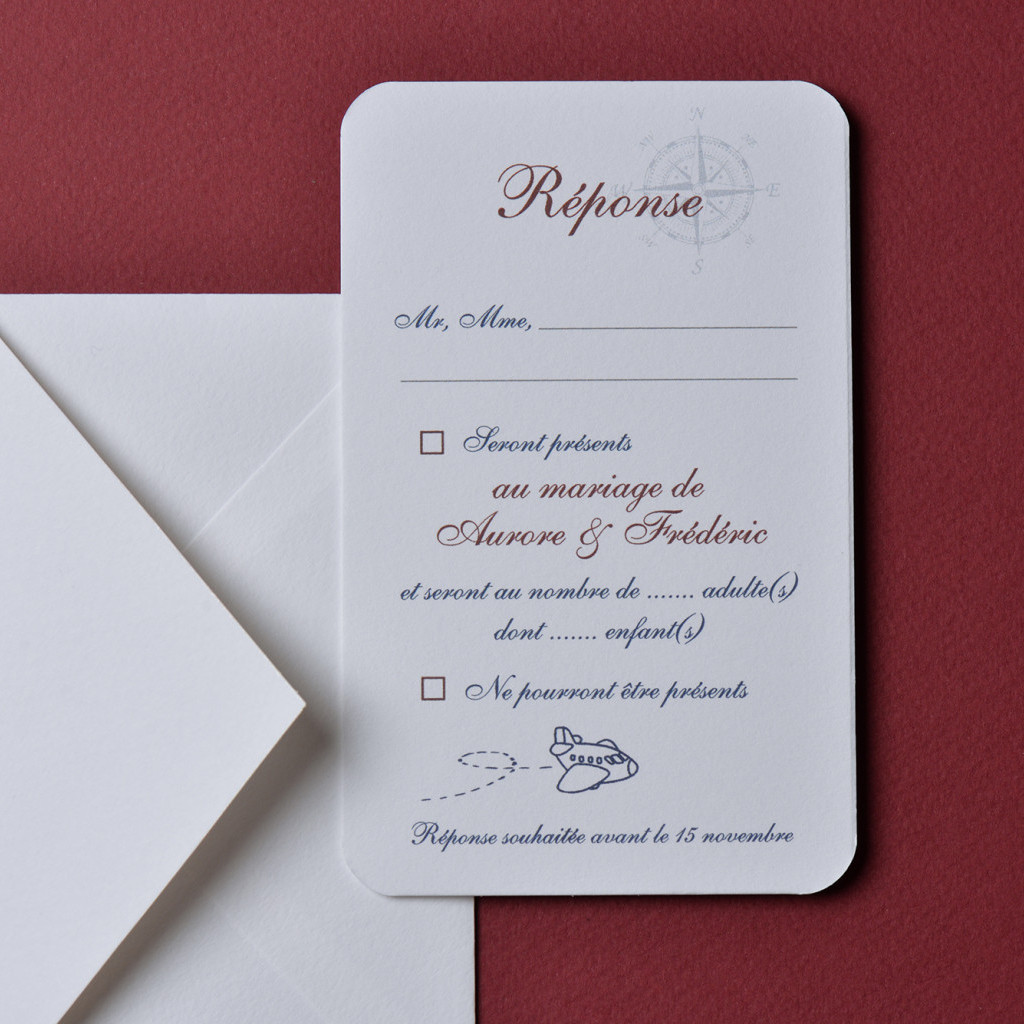 N
NW NE
W E
SW SE
S
Réponse
Mr, Mme, 
Seront présents
au mariage de
Aurore & Frédéric
et seront au nombre de ....... adulte(s)
dont ....... enfant(s)
Ne pourront être présents
Réponse souhaitée avant le 15 novembre